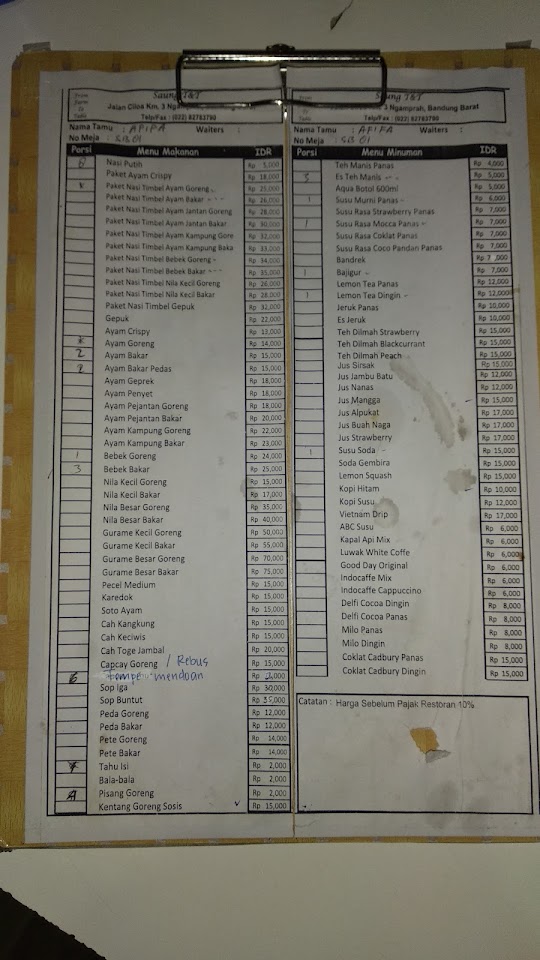 Saung T&T
Jalan Ciloa Km. 3 Ngamprah, Bandung Barat
Telp/Fax : (022) 82783790
Nama Tamu : AFIFA Waiters :
No Meja : SB 01
Porsi Menu Makanan IDR
Nasi Putih Rp 5,000
Paket Ayam Crispy Rp 18,000
Paket Nasi Timbel Ayam Goreng Rp 25,000
Paket Nasi Timbel Ayam Bakar Rp 26,000
Paket Nasi Timbel Ayam Jantan Goreng Rp 28,000
Paket Nasi Timbel Ayam Jantan Bakar Rp 30,000
Paket Nasi Timbel Ayam Kampung Gore Rp 32,000
Paket Nasi Timbel Ayam Kampung Baka Rp 33,000
Paket Nasi Timbel Bebek Goreng Rp 34,000
Paket Nasi Timbel Bebek Bakar Rp 35,000
Paket Nasi Timbel Nila Kecil Goreng Rp 26,000
Paket Nasi Timbel Nila Kecil Bakar Rp 28,000
Paket Nasi Timbel Gepuk Rp 32,000
Gepuk Rp 22,000
Ayam Crispy Rp 13,000
Ayam Goreng Rp 14,000
2 Ayam Bakar Rp 15,000
2 Ayam Bakar Pedas Rp 15,000
Ayam Geprek Rp 18,000
Ayam Penyet Rp 18,000
Ayam Pejantan Goreng Rp 18,000
Ayam Pejantan Bakar Rp 20,000
Ayam Kampung Goreng Rp 22,000
Ayam Kampung Bakar Rp 23,000
1 Bebek Goreng Rp 24,000
3 Bebek Bakar Rp 25,000
Nila Kecil Goreng Rp 15,000
Nila Kecil Bakar Rp 17,000
Nila Besar Goreng Rp 35,000
Nila Besar Bakar Rp 40,000
Gurame Kecil Goreng Rp 50,000
Gurame Kecil Bakar Rp 55,000
Gurame Besar Goreng Rp 70,000
Gurame Besar Bakar Rp 75,000
Pecel Medium Rp 15,000
Karedok Rp 15,000
Soto Ayam Rp 15,000
Cah Kangkung Rp 15,000
Cah Keciwis Rp 15,000
Cah Toge Jambal Rp 20,000
Capcay Goreng / Rebus Rp 15,000
6 Tempe mendoan Rp 2,000
Sop Iga Rp 30,000
Sop Buntut Rp 35,000
Peda Goreng Rp 12,000
Peda Bakar Rp 12,000
Pete Goreng Rp 14,000
Pete Bakar Rp 14,000
Tahu Isi Rp 2,000
Bala-bala Rp 2,000
Pisang Goreng Rp 2,000
Kentang Goreng Sosis Rp 15,000
Saung T&T
3 Ngamprah, Bandung Barat
Telp/Fax : (022) 82783790
Nama Tamu : AFIFA Waiters :
No Meja : SB 01
Porsi Menu Minuman IDR
Teh Manis Panas Rp 4,000
3 Es Teh Manis Rp 5,000
Aqua Botol 600ml Rp 5,000
1 Susu Murni Panas Rp 6,000
Susu Rasa Strawberry Panas Rp 7,000
1 Susu Rasa Mocca Panas Rp 7,000
Susu Rasa Coklat Panas Rp 7,000
Susu Rasa Coco Pandan Panas Rp 7,000
Bandrek Rp 7,000
1 Bajigur Rp 7,000
Lemon Tea Panas Rp 12,000
1 Lemon Tea Dingin Rp 12,000
Jeruk Panas Rp 10,000
Es Jeruk Rp 10,000
Teh Dilmah Strawberry Rp 15,000
Teh Dilmah Blackcurrant Rp 15,000
Teh Dilmah Peach Rp 15,000
Jus Sirsak Rp 15,000
Jus Jambu Batu Rp 12,000
Jus Nanas Rp 12,000
Jus Mangga Rp 15,000
Jus Alpukat Rp 17,000
Jus Buah Naga Rp 17,000
Jus Strawberry Rp 17,000
1 Susu Soda Rp 15,000
Soda Gembira Rp 15,000
Lemon Squash Rp 15,000
Kopi Hitam Rp 10,000
Kopi Susu Rp 12,000
Vietnam Drip Rp 17,000
ABC Susu Rp 6,000
Kapal Api Mix Rp 6,000
Luwak White Coffe Rp 6,000
Good Day Original Rp 6,000
Indocaffe Mix Rp 6,000
Indocaffe Cappucino Rp 6,000
Delfi Cocoa Dingin Rp 8,000
Delfi Cocoa Panas Rp 8,000
Milo Panas Rp 8,000
Milo Dingin Rp 8,000
Coklat Cadbury Panas Rp 15,000
Coklat Cadbury Dingin Rp 15,000
Catatan : Harga Sebelum Pajak Restoran 10%